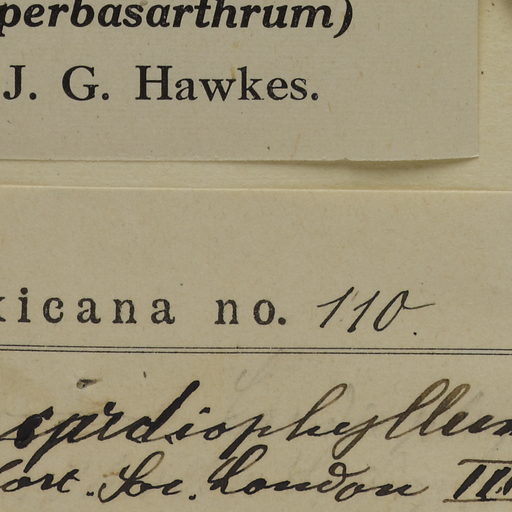 perbasarthrum)
J. G. Hawkes.
xicana no. 110.
cardiophyllum
Hort. Soc. London III